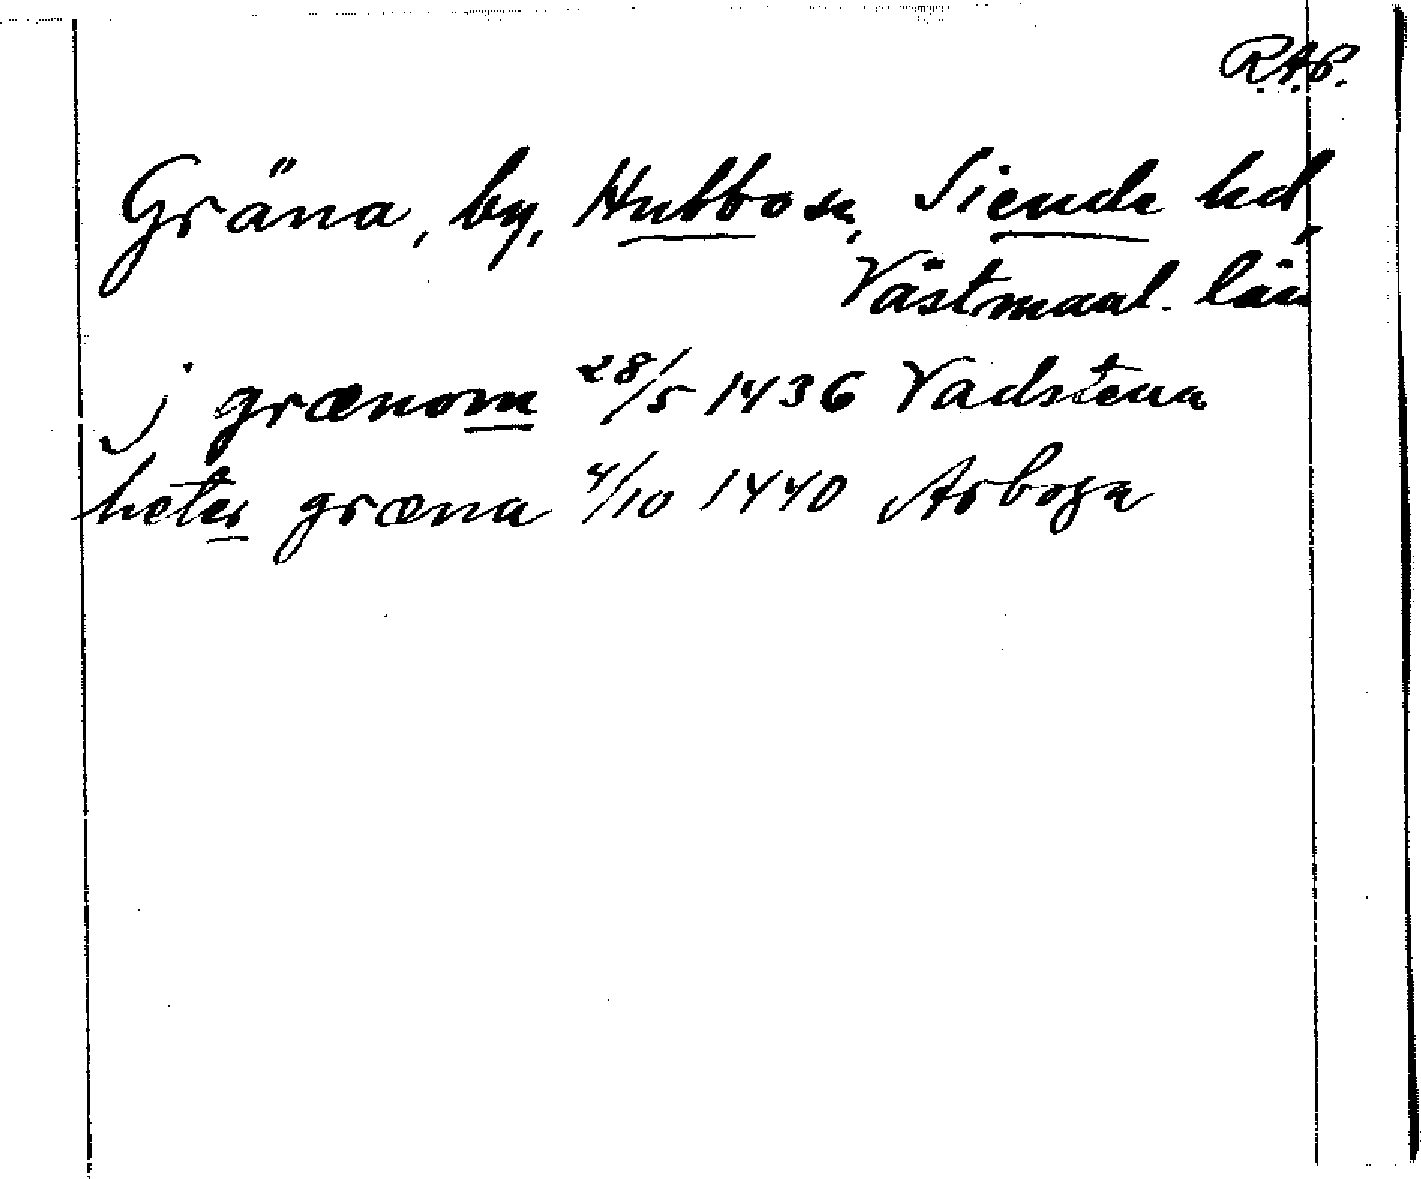 R.A.P.
Gräna, by, Hubbo sn, Siende hd,
Västmanl. län
j grænom 28/5 1436 Vadstena
heter græna 4/10 1440 Arboga